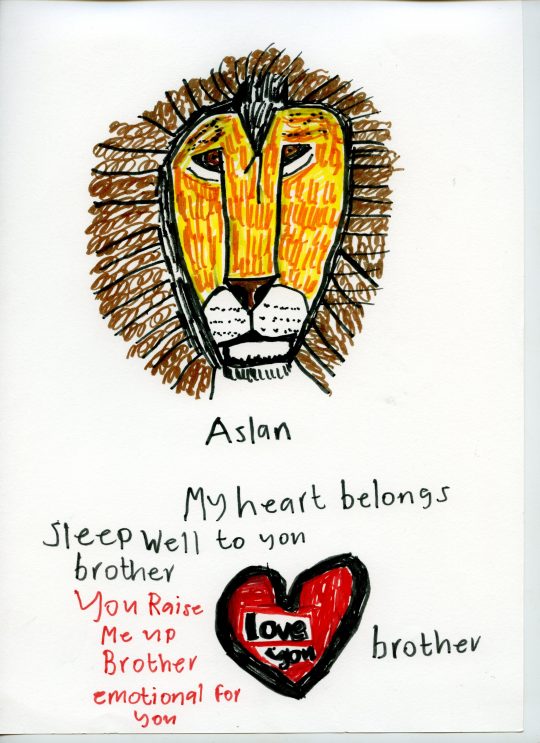 Aslan
My heart belongs
Sleep Well to you
brother
You Raise
Me up
Brother
emotional for
you
love
you
brother